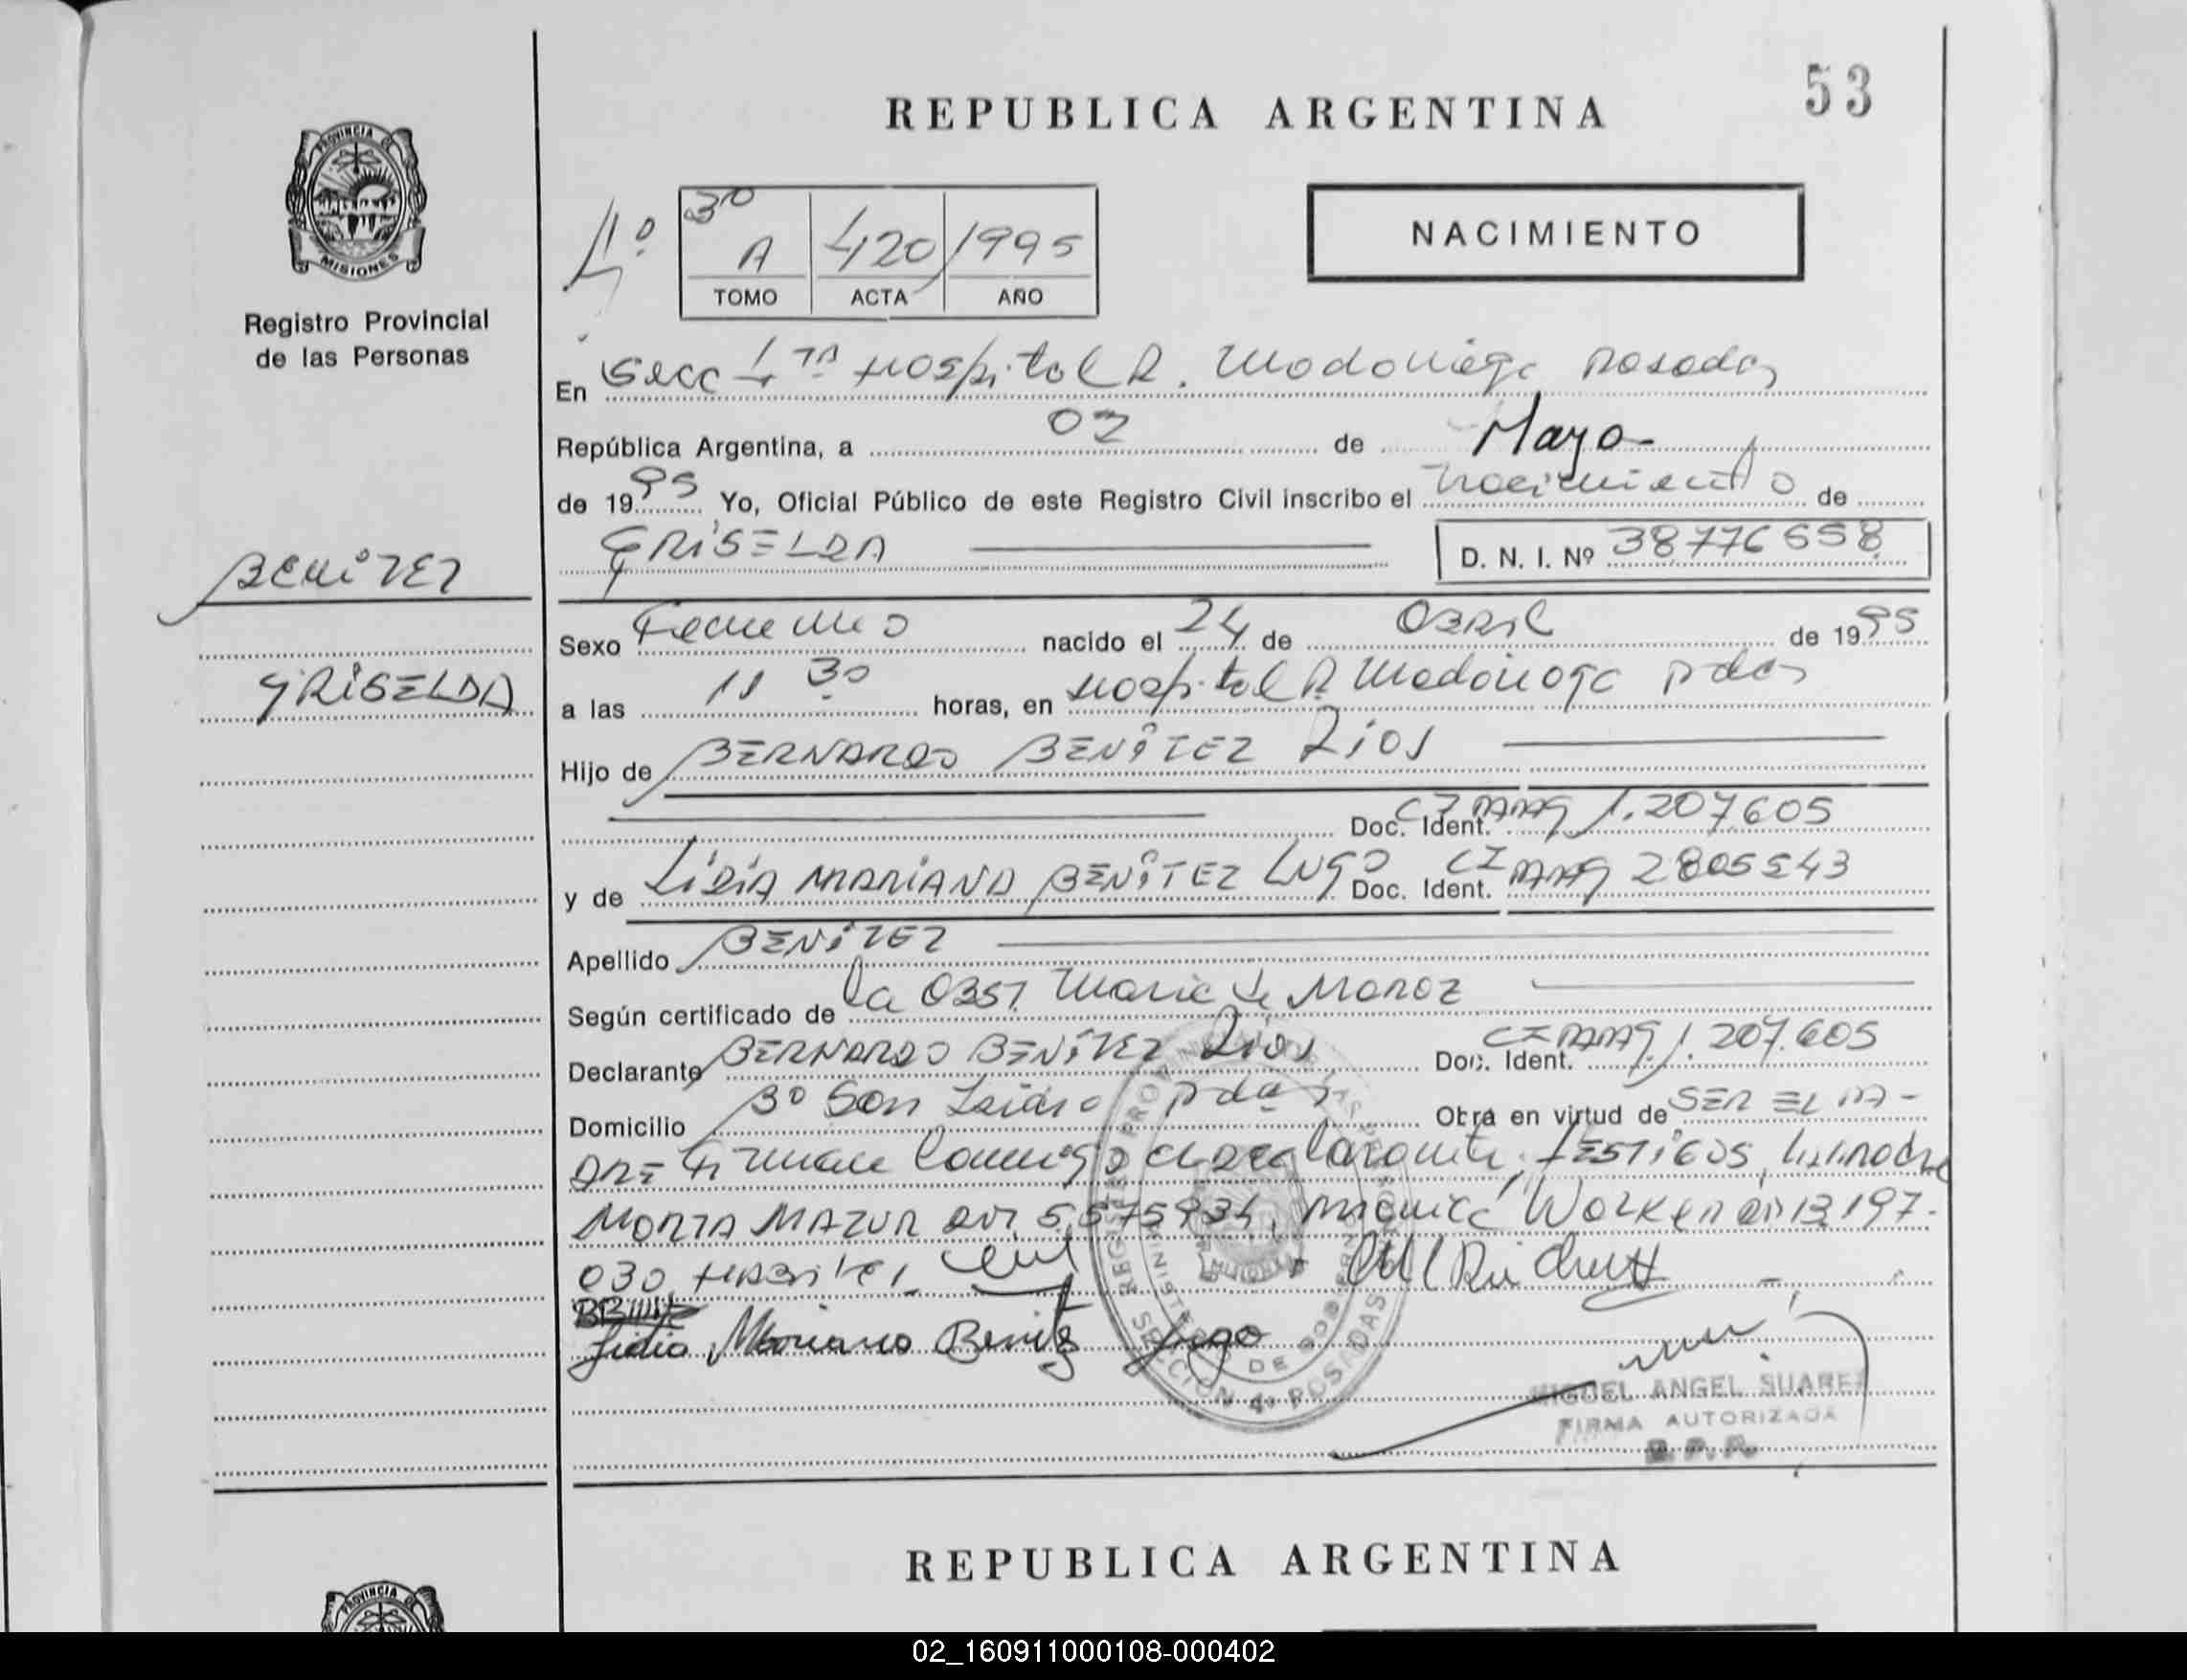 53
REPUBLICA ARGENTINA
PROVINCIA DE
MISIONES
Registro Provincial
de las Personas
4º
3º
A 420 1995
TOMO ACTA AÑO
NACIMIENTO
En Secc 4ta Hospital R. Madariaga Posadas
República Argentina, a 02 de Mayo
de 1995 Yo, Oficial Público de este Registro Civil inscribo el nacimiento de
GRISELDA D. N. I. Nº 38776558
BENITEZ
GRISELDA
Sexo Femenino nacido el 24 de Abril de 1995
a las 11 30 horas, en Hospital R Madariaga Pdas
Hijo de BERNARDO BENITEZ RIOS
Doc. Ident. CI PAAG 1.207605
y de LIDIA MARIANA BENITEZ LUGO Doc. Ident. CI PAAG 2805543
Apellido BENITEZ
Según certificado de la Obst. Maria de Moroz
Declarante BERNARDO BENITEZ Rios Doc. Ident. CI PAAG 1.207.605
Domicilio Bº San Isidro Pdas Obra en virtud de SER EL PA-
DRE Firman conmigo declarante, TESTIGOS, la madre
MAZUR DNI Monica DNI 13.197.
030 Habiles
Lidia Mariana Benitez Lugo
SECCION 4º POSADAS
MIGUEL ANGEL SUAREZ
FIRMA AUTORIZADA
R.P.P.
REPUBLICA ARGENTINA
PROVINCIA DE
02_160911000108-000402